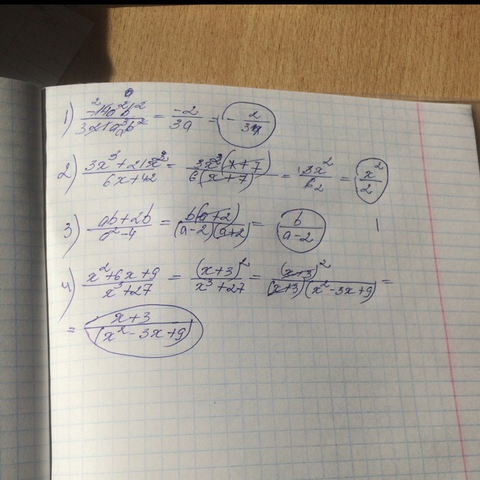 1) -14a²b² / 21a³b² = -2 / 3a = - 2 / 3a
2) 3x³+21x² / 6x+42 = 3x²(x+7) / 6(x+7) = 3x² / 6 2 = x² / 2
3) ab+2b / a²-4 = b(a+2) / (a-2)(a+2) = b / a-2
4) x²+6x+9 / x³+27 = (x+3)² / x³+27 = (x+3)² / (x+3)(x²-3x+9) =
= x+3 / (x²-3x+9)